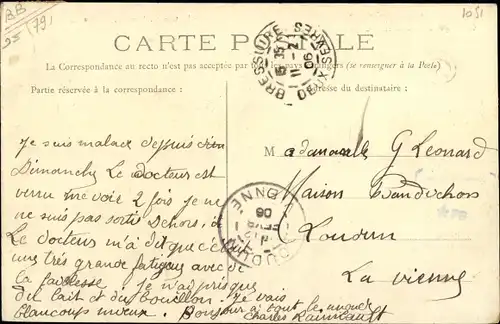 BB
95 (79)
1051
CARTE POSTALE
La Correspondance au recto n'est pas acceptée par tous les pays étrangers (se renseigner à la Poste)
Partie réservée à la correspondance :
Adresse du destinataire :
BRESSUIRE
DEUX-SÈVRES
Je suis malade depuis
Dimanche Le docteur est
venu me voir 2 fois je ne
ne suis pas sortie dehors,
Le docteur m'a dit que c'était
une très grande fatigue avec de
la faiblesse. Je n'ai pris que
du lait et du bouillon. Je vais
beaucoup mieux. Bonjour à tout le monde
Charles
Mademoiselle G Léonard
Maison
Loudun
La Vienne
LOUDUN
VIENNE